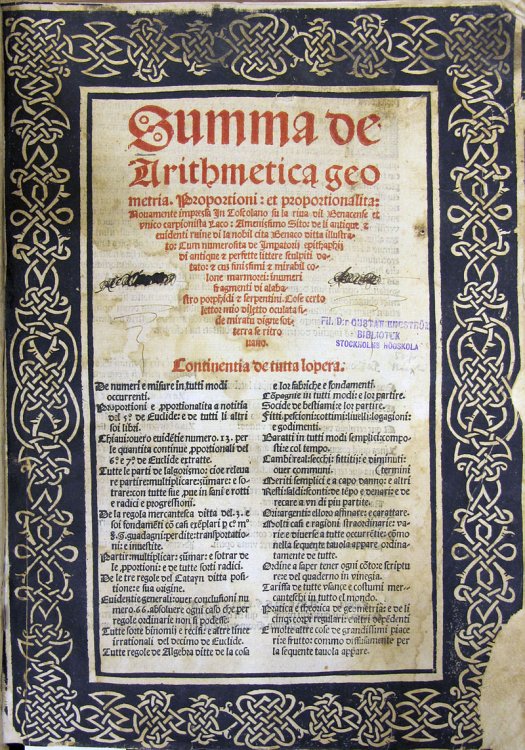 Summa de
Arithmetica geo
metria. Proportioni: et proportionalita:
Nouamente impressa In Toscolano su la riua dil Benacense et
vnico carpionista Laco: Amenissimo Sito: de li antique &
euidenti ruine di la nobil cita Benaco ditta illustra-
to: Cum numerosita de Impatorii epithaphii
di antique & perfette littere sculpiti do-
tato: & cus finissimi & mirabil co-
lone marmorei: inumeri
fragmenti di alaba-
stro porphidi & serpentini. Cose certo
lettor mio diletto oculata fi-
de miratu digne sot-
terra se ritro
uano.
FIL. D:r GUSTAF ENESTRÖMS
BIBLIOTEK
STOCKHOLMS HÖGSKOLA
Continentia de tutta lopera.
De numeri e misure in tutti modi
occurrenti.
Proportioni e ꝓportionalita a notitia
del .5º. de Euclide: e de tutti li altri
soi libri.
Chiaui: ouero euidētie numero .13. per
le quantita continue ꝓportionali del
.6º. e .7º. de Euclide extratte.
Tutte le parti de lalgorismo: cioe releua
re partire: multiplicare: sūmare: e so-
trare: con tutte sue ꝓue in sani e rotti
e radici e progressioni.
De la regola mercantesca ditta del .3. e
soi fondamēti cō casi exēplari ꝑ cº mº
guadagni: perdite: transportatio-
ni: e inuestite.
Partir: multiplicar: sūmar: e sotrar de
le ꝓportioni: e de tutte sorti radici.
De le tre regole del Catayn ditta posi-
tione: e sua origine.
Euidentie generali: ouer conclusioni nu
mero .66. absoluere ogni caso che per
regole ordinarie non si podesse.
Tutte sorte binomii e recisi: e altre linee
irrationali del decimo de Euclide.
Tutte regole de Algebra ditte de la cosa
e lor fabriche e fondamenti.
Cōpagnie in tutti modi: e lor partire.
Socide de bestiami: e lor partire.
Fitti: pesciōi: cottimi: liuelli: logagioni:
e godimenti.
Baratti in tutti modi semplici: compo-
sti: e col tempo.
Cambi reali: secchi: fittitii: e diminuti:
ouer communi. (termini
Meriti semplici e a capo danno: e altri
Resti: saldi: sconti: de tēpo e denari: e de
recare a vn di piu partite.
Ori: argenti: e lloro affinare: e carattare.
Molti casi e ragioni straordinarie: va-
rie e diuerse a tutte occurrētie: cōmo
nella sequente tauola appare ordinata
mente de tutte.
Ordine a saper tener ogni cōto: e scriptu
re: e del quaderno in vinegia.
Tariffa de tutte vsançe e costumi mer-
canteschi in tutto el mondo.
Pratica e theorica de geometria: e de li
cinqs corpi regulari: e altri depēdenti
E molte altre cose de grandissimi piace
ri: e frutto: commo diffusamente per
la sequente tauola appare.